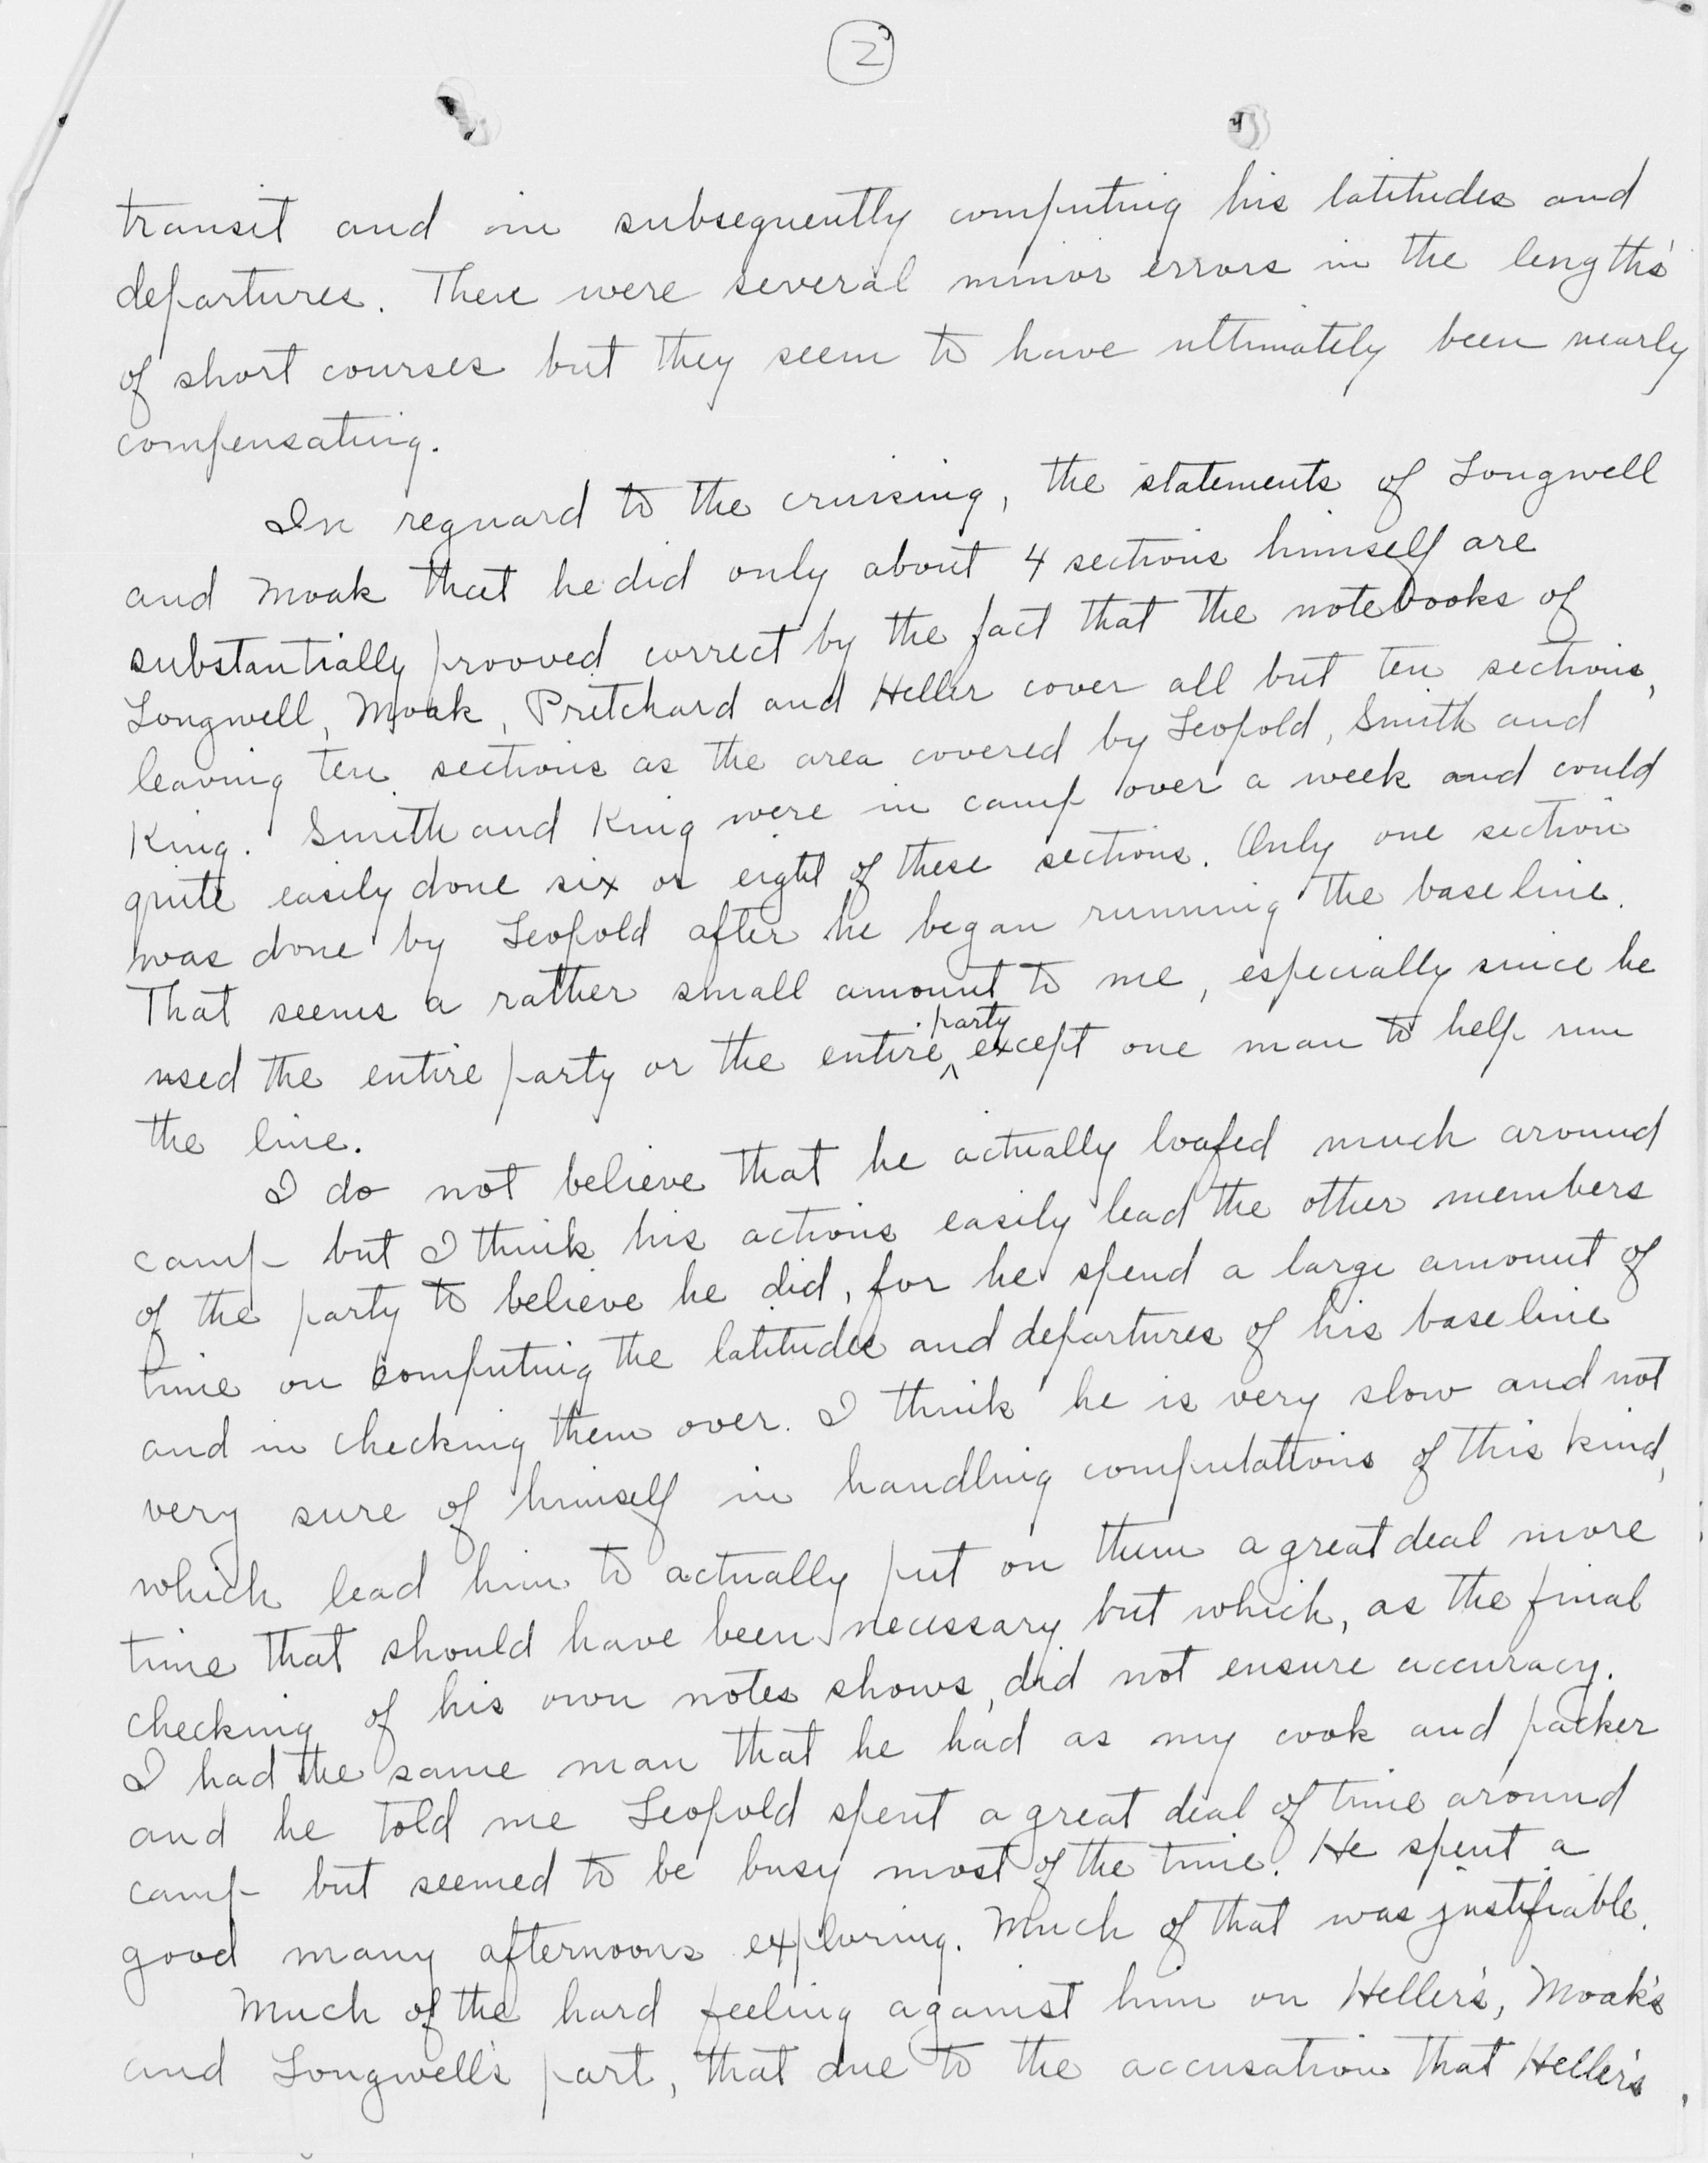 2
transit and in subsequently computing his latitudes and
departures. There were several minor errors in the length's
of short courses but they seem to have ultimately been nearly
compensating.
In reguard to the cruising, the statements of Longwell
and Moak that he did only about 4 sections himself are
substantially prooved correct by the fact that the notebooks of
Longwell, Moak, Pritchard and Heller cover all but ten sections,
leaving ten sections as the area covered by Leopold, Smith and
King. Smith and King were in camp over a week and could
quite easily done six or eight of these sections. Only one section
was done by Leopold after he began running the base line.
That seems a rather small amount to me, especially since he
party
used the entire party or the entire ^ except one man to help run
the line.
I do not believe that he actually loafed much around
camp but I think his actions easily lead the other members
of the party to believe he did, for he spend a large amount of
time on computing the latitudes and departures of his base line
and in checking them over. I think he is very slow and not
very sure of himself in handling computations of this kind,
which lead him to actually put on them a great deal more
time that should have been necessary but which, as the final
checking of his own notes shows, did not ensure accuracy.
I had the same man that he had as my cook and packer
and he told me Leopold spent a great deal of time around
camp but seemed to be busy most of the time. He spent a
good many afternoons exploring. Much of that was justifiable.
Much of the hard feeling against him on Heller's, Moak's
and Longwell's part, that due to the accusation that Heller's